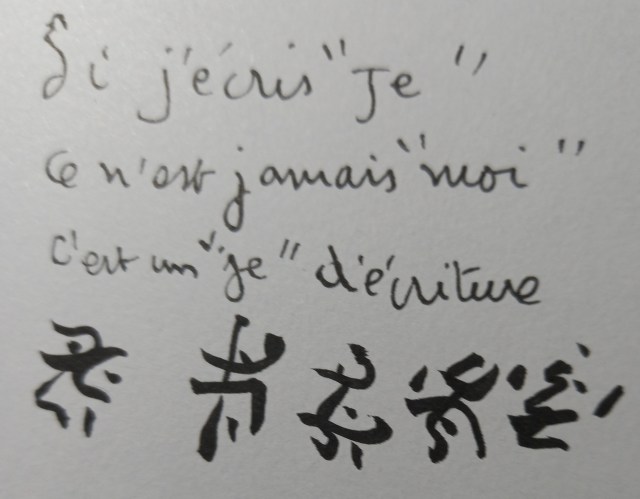 Si j'écris "Je"
Ce n'est jamais "moi"
C'est un "je" d'écriture